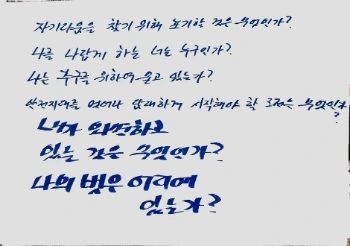 자기다움을 찾기 위해 포기할 것은 무엇인가?
나를 나답게 하는 너는 누구인가?
나는 누구를 위하여 울고 있는가?
안전지대를 벗어나 담대하게 시작해야 할 도전은 무엇인가?
내가 외면하고
있는 것은 무엇인가?
나의 빛은 어디에
있는가?